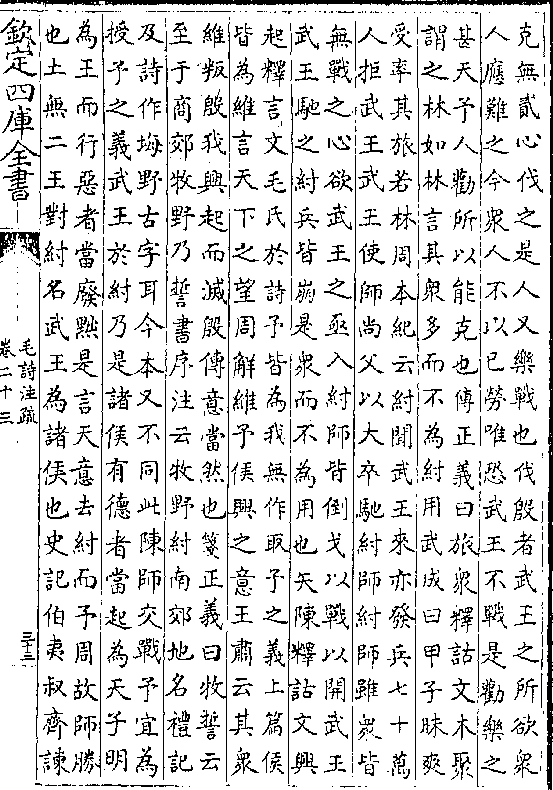 克無貳心伐之是人又樂戰也伐殷者武王之所欲衆
人應難之今衆人不以已勞唯恐武王不戰是勸樂之
甚天予人勸所以能克也傳正義曰旅衆釋詁文木聚
謂之林如林言其衆多而不為紂用武成曰甲子昧爽
受率其旅若林周本紀云紂聞武王來亦發兵七十萬
人拒武王武王使師尚父以大卒馳紂師紂師雖衆皆
無戰之心欲武王之亟入紂師皆倒戈以戰以開武王
武王馳之紂兵皆崩是衆而不為用也矢陳釋詁文興
起釋言文毛氏於詩予皆為我無作取予之義上篇侯
皆為維言天下之望周解維予侯興之意王肅云其衆
維叛殷我興起而滅殷傳意當然也箋正義曰牧誓云
至于商郊牧野乃誓書序注云牧野紂南郊地名禮記
及詩作坶野古字耳今本又不同此陳師交戰予宜為
授予之義武王於紂乃是諸侯有德者當起為天子明
為王而行惡者當廢黜是言天意去紂而予周故師勝
也土無二王對紂名武王為諸侯也史記伯夷叔齊諫
欽定四庫全書
毛詩注疏
卷二十三
三十三